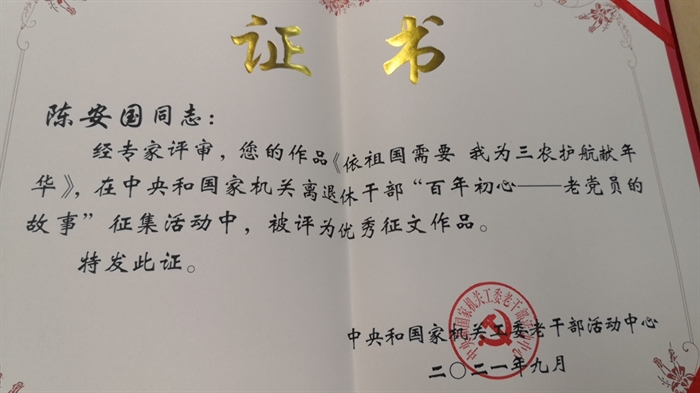 证 书
陈安国同志：
经专家评审，您的作品《依祖国需要 我为三农护航献年
华》，在中央和国家机关离退休干部“百年初心——老党员的
故事”征集活动中，被评为优秀征文作品。
特发此证。
中央和国家机关工委老干部活动中心
二〇二一年九月